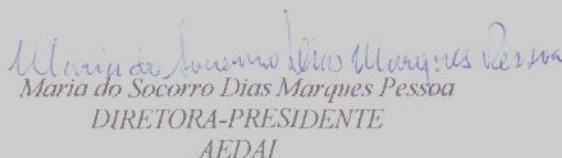 Maria do Socorro Dias Marques Pessoa
Maria do Socorro Dias Marques Pessoa
DIRETORA-PRESIDENTE
AEDAI